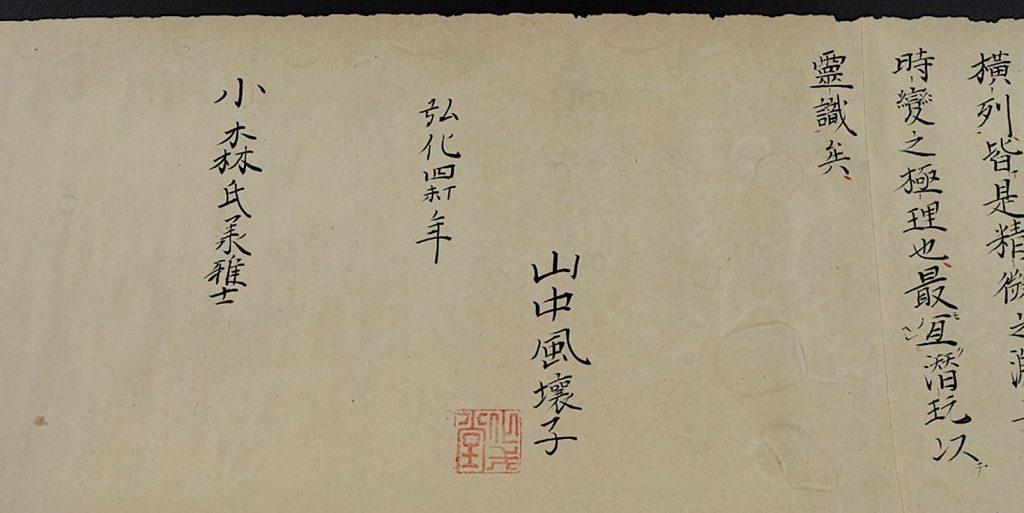 橫列皆是精微之淵
時變之極理也最宜潛玩以テ
靈識矣
山中風壞子
弘化四丁未年
小森氏義雅士